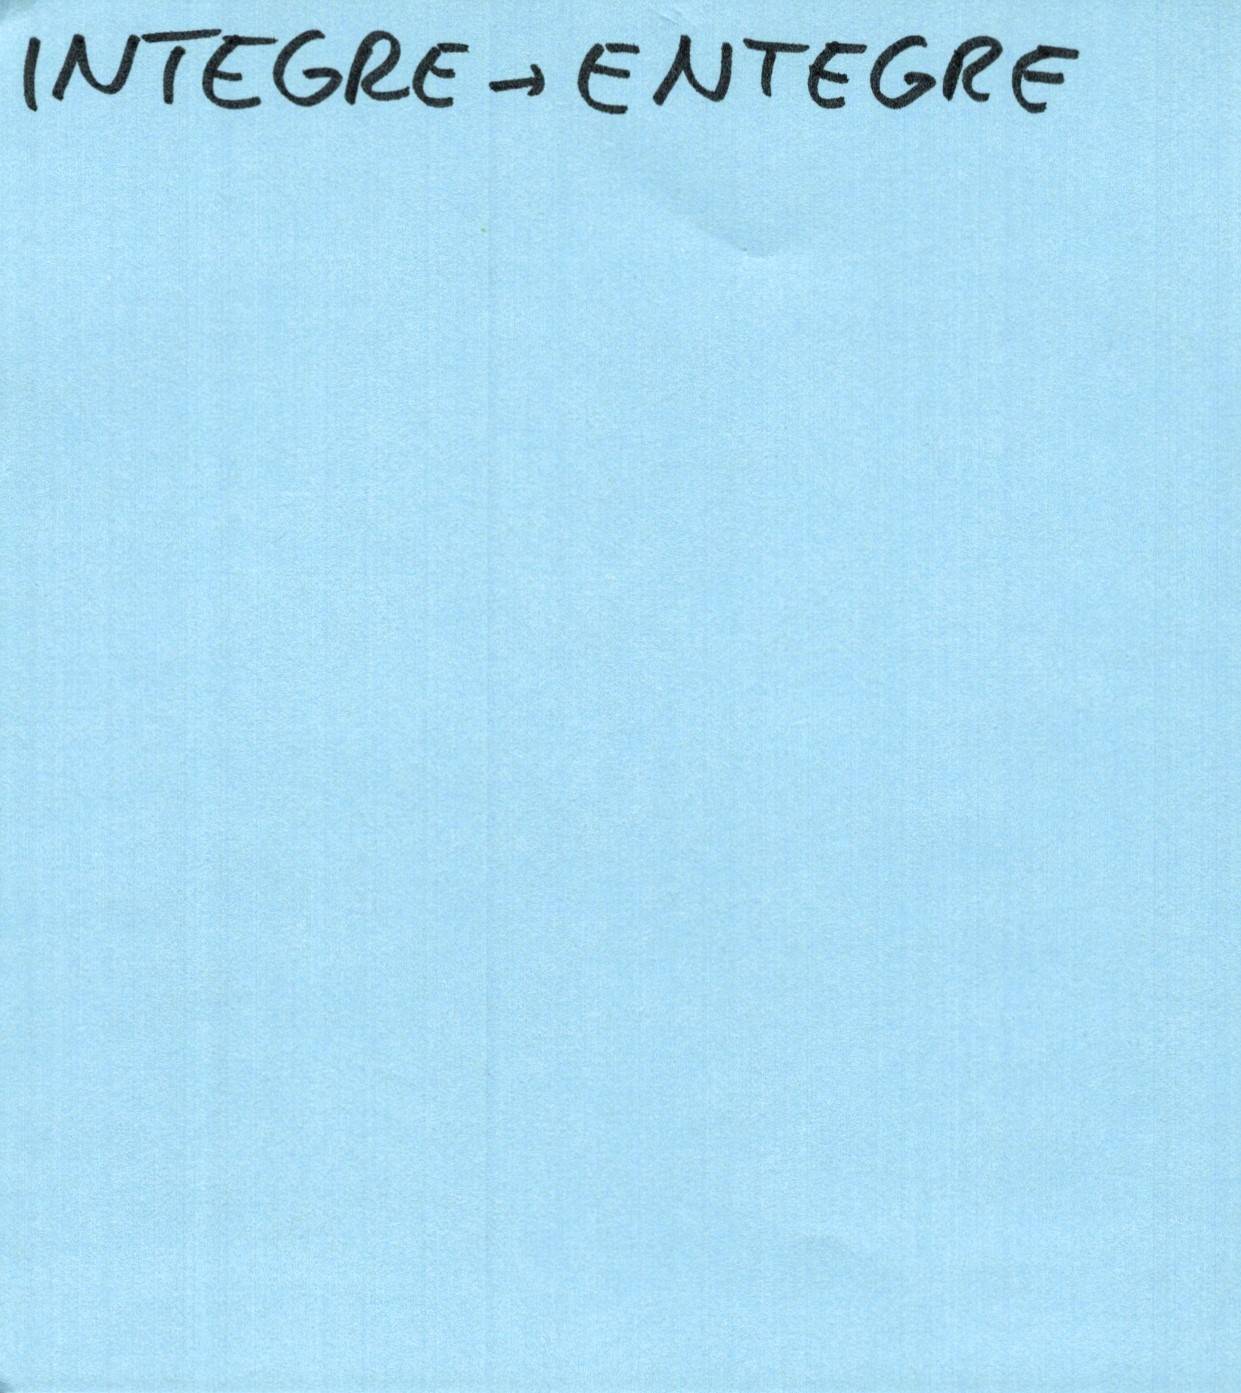 INTEGRE → ENTEGRE